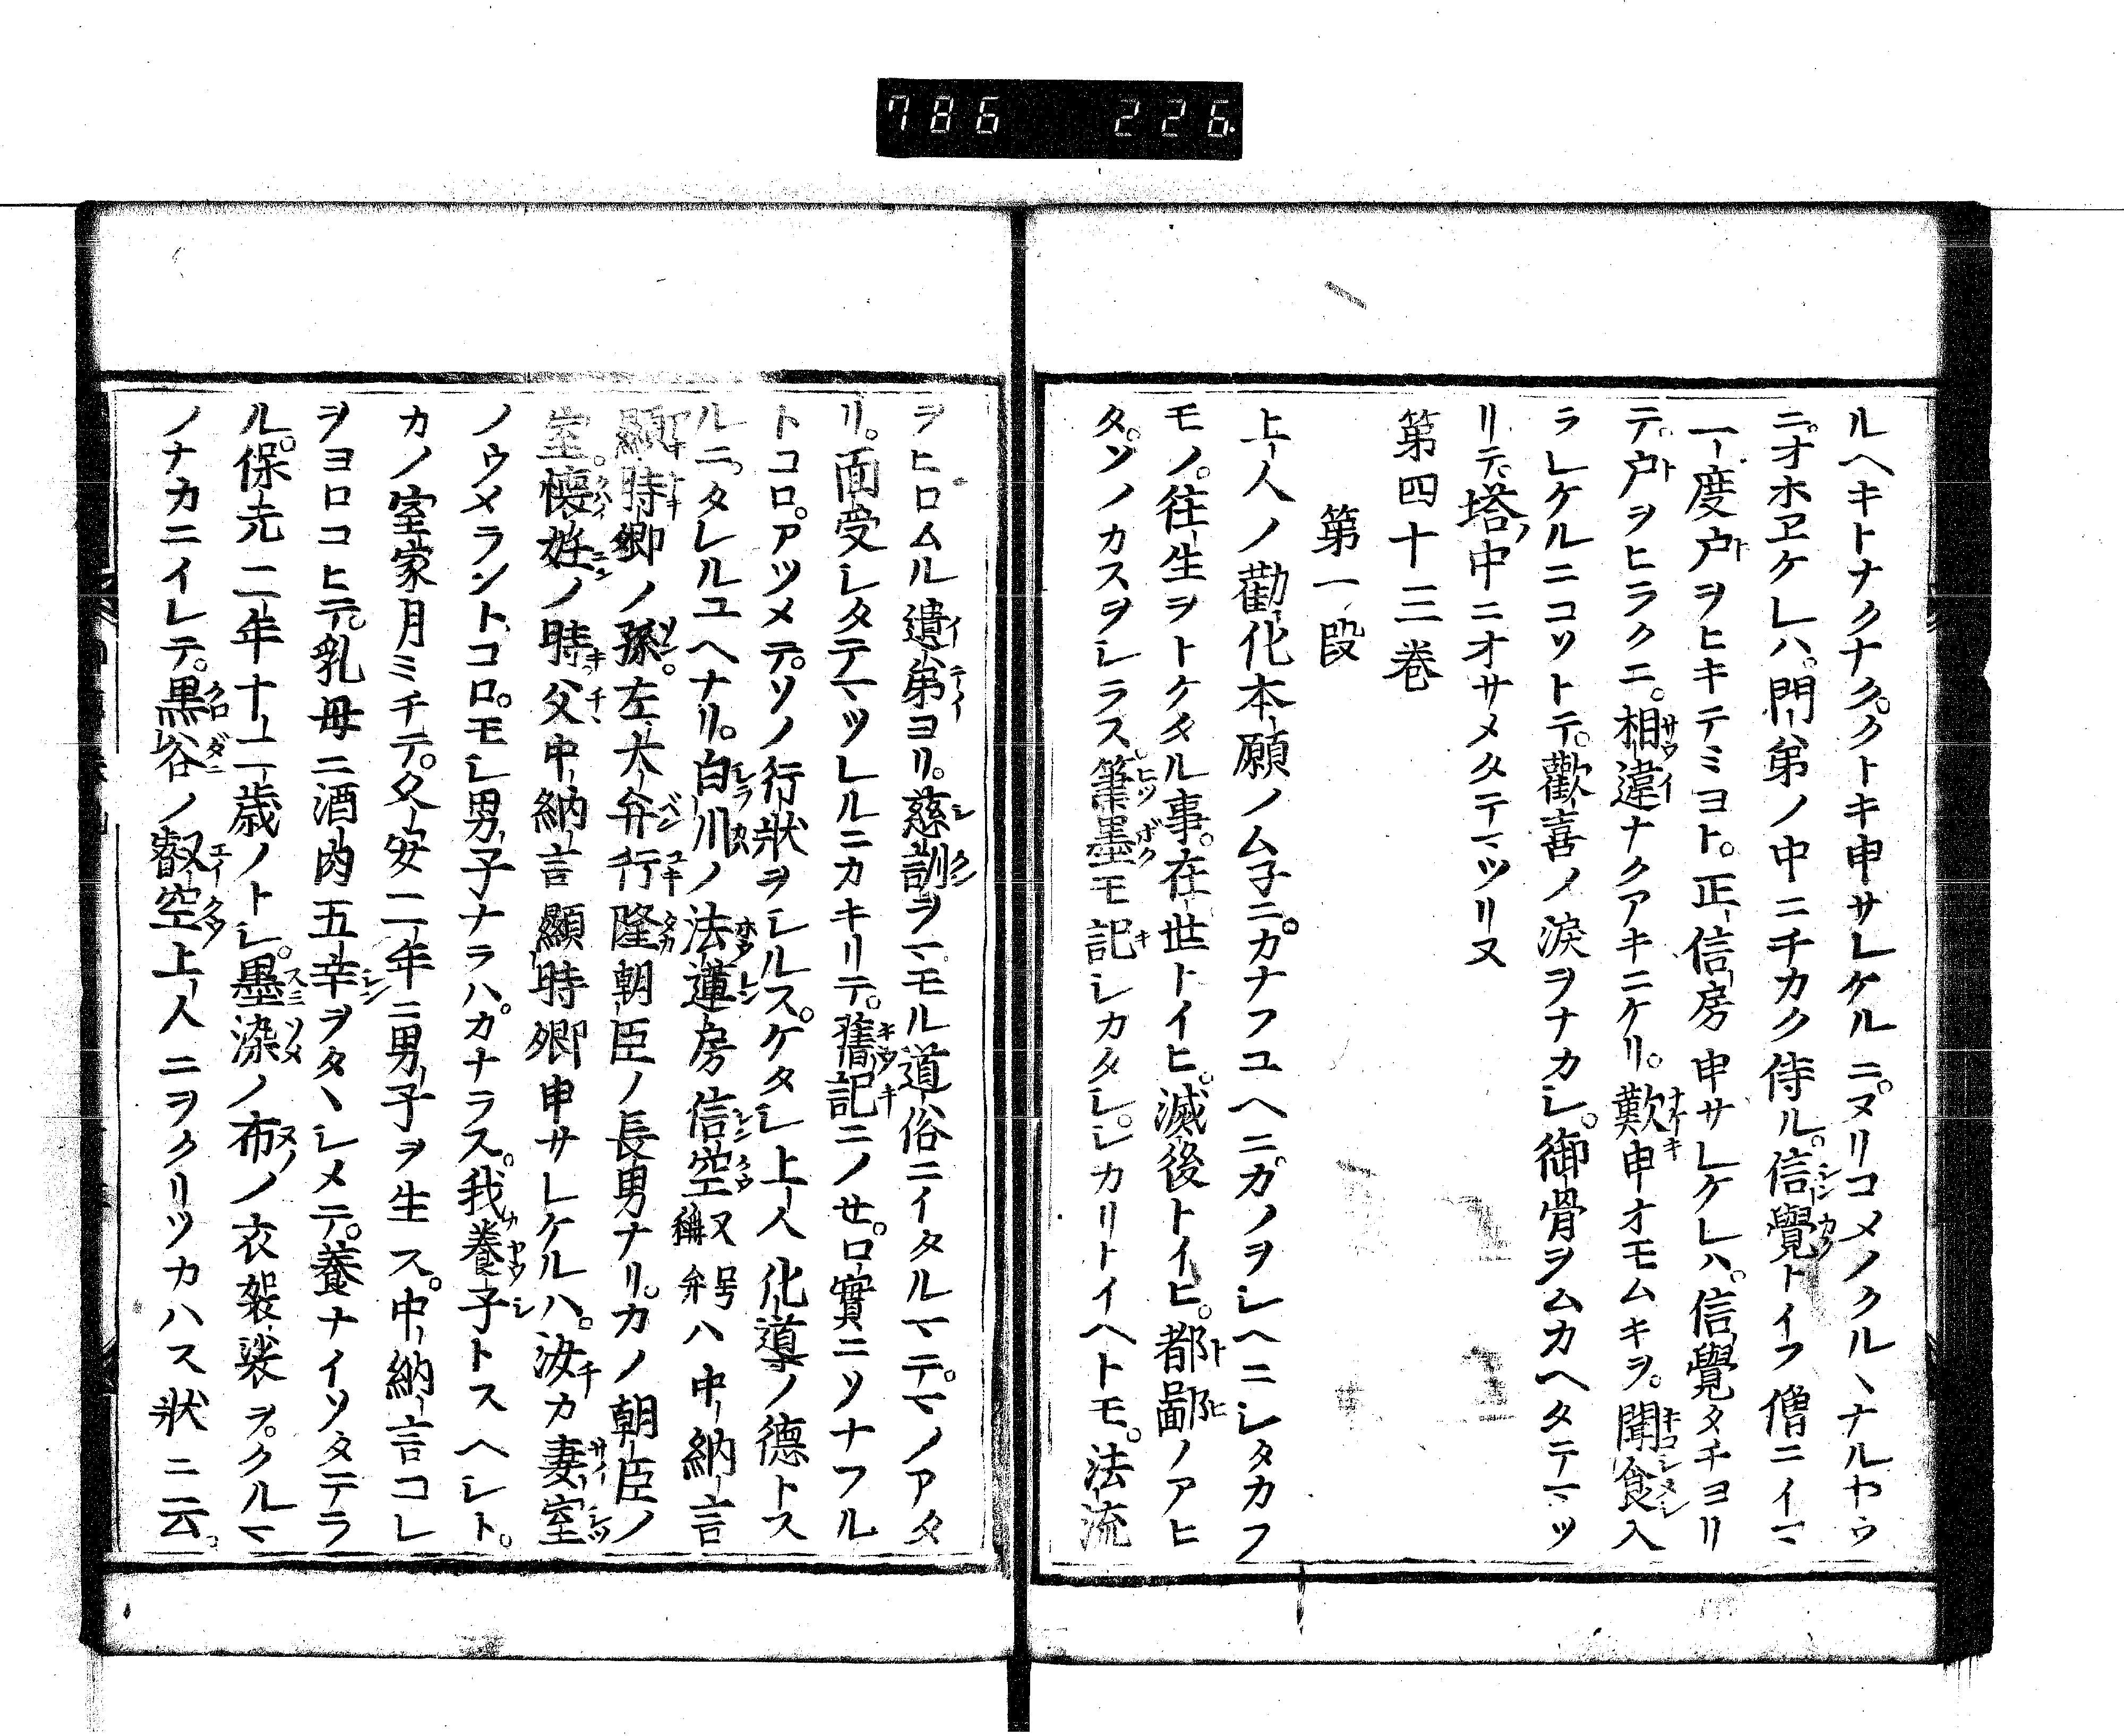 786 226
ルヘキトナクナク。クトキ申サレケルニ。ヌリコメノクル丶ナルヤウ
ニ。オホヱケレハ。門弟ノ中ニチカク侍ル。信覺トイフ僧ニイマ
一度戸ヲヒキテミヨト。正信房申サレケレハ。信覺タチヨリ
テ。戸ヲヒラクニ。相違ナクアキニケリ。歎申オモムキヲ。聞食入
ラレケルニコソトテ。歡喜ノ淚ヲナカシ。御骨ヲムカヘタテマツ
リテ。塔中ニオサメタテマツリヌ
第四十三卷
第一段
上人ノ勸化本願ノムネニ。カナフユヘニ。カノヲシヘニシタカフ
モノ。往生ヲトケタル事。在世トイヒ。滅後トイヒ。都鄙ノアヒ
タ。ソノカスヲシラス筆墨モ記シカタシ。シカリトイヘトモ。法流
ヲヒロムル遺弟ヨリ。慈訓ヲマモル道俗ニイタルマテ。マノアタ
リ。面受シタテマツレルニカキリテ。舊記ニノセ。口實ニソナフル
トコロ。アツメテ。ソノ行狀ヲシルス。ケタシ上人化導ノ德トス
ルニ。タレルユヘナリ。白川ノ法蓮房信空又號稱弁ハ中納言
顯時卿ノ孫。左大弁行隆朝臣ノ長男ナリ。カノ朝臣ノ
室。懷姙ノ時父中納言顯時卿申サレケルハ。汝カ妻室
ノウメラントコロ。モシ男子ナラハ。カナラス。我養子トスヘシト。
カノ室家月ミチテ。久安二年ニ男子ヲ生ス。中納言コレ
ヲヨロコヒテ。乳母ニ酒肉五辛ヲタヽシメテ。養ナイソタテラ
ル。保元二年十二歳ノトシ。墨染ノ布ノ衣袈裟ヲ。クルマ
ノナカニイレテ。黒谷ノ叡空上人ニヲクリツカハス狀ニ云。